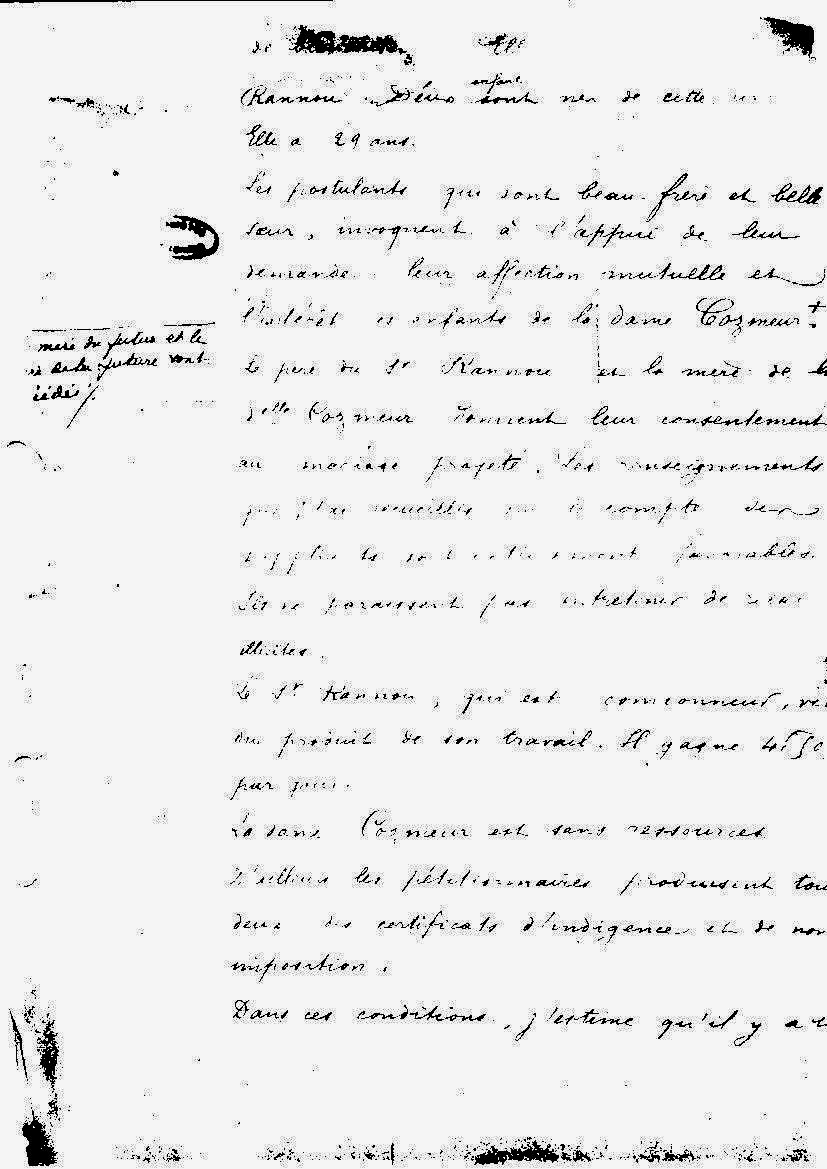 de
Rannou. Deux enfant sont nés de cette
Elle a 29 ans.
Les postulants qui sont beau-frère et belle
sœur, invoquent à l'appui de leur
demande leur affection mutuelle et
l'intérêt es enfants de la dame Cozmeur +
mère du futur et le
de la future sont
cédés ./.
Le père du Sr Rannou et la mère de la
delle Cozmeur donnent leur consentement
au mariage projeté. Les renseignements
recueillis compte des
sont favorables.
Ils ne paraissent pas entretenir de
illicites.
Le Sr Rannou, qui est camionneur, vi
du produit de son travail. Il gagne 4f50
par jour.
La dame Cozmeur est sans ressources
D'ailleurs les pétitionnaires produisent tou
deux des certificats d'indigence et de non
imposition.
Dans ces conditions, j'estime qu'il y a